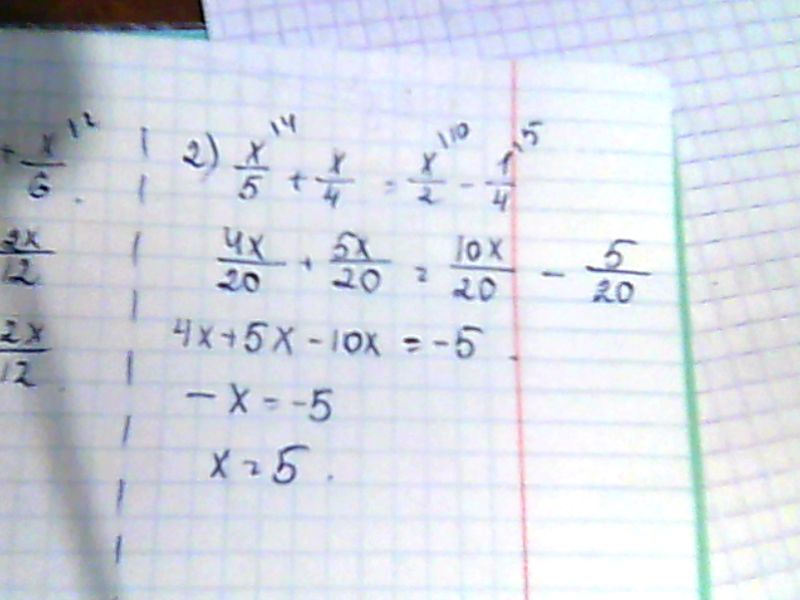 + x/6 ^12
2x/12
2x/12
2) x/5 ^14 + x/4 = x/2 ^110 - 1/4 ^15
4x/20 + 5x/20 = 10x/20 - 5/20
4x+5x-10x = -5
-x = -5
x = 5.